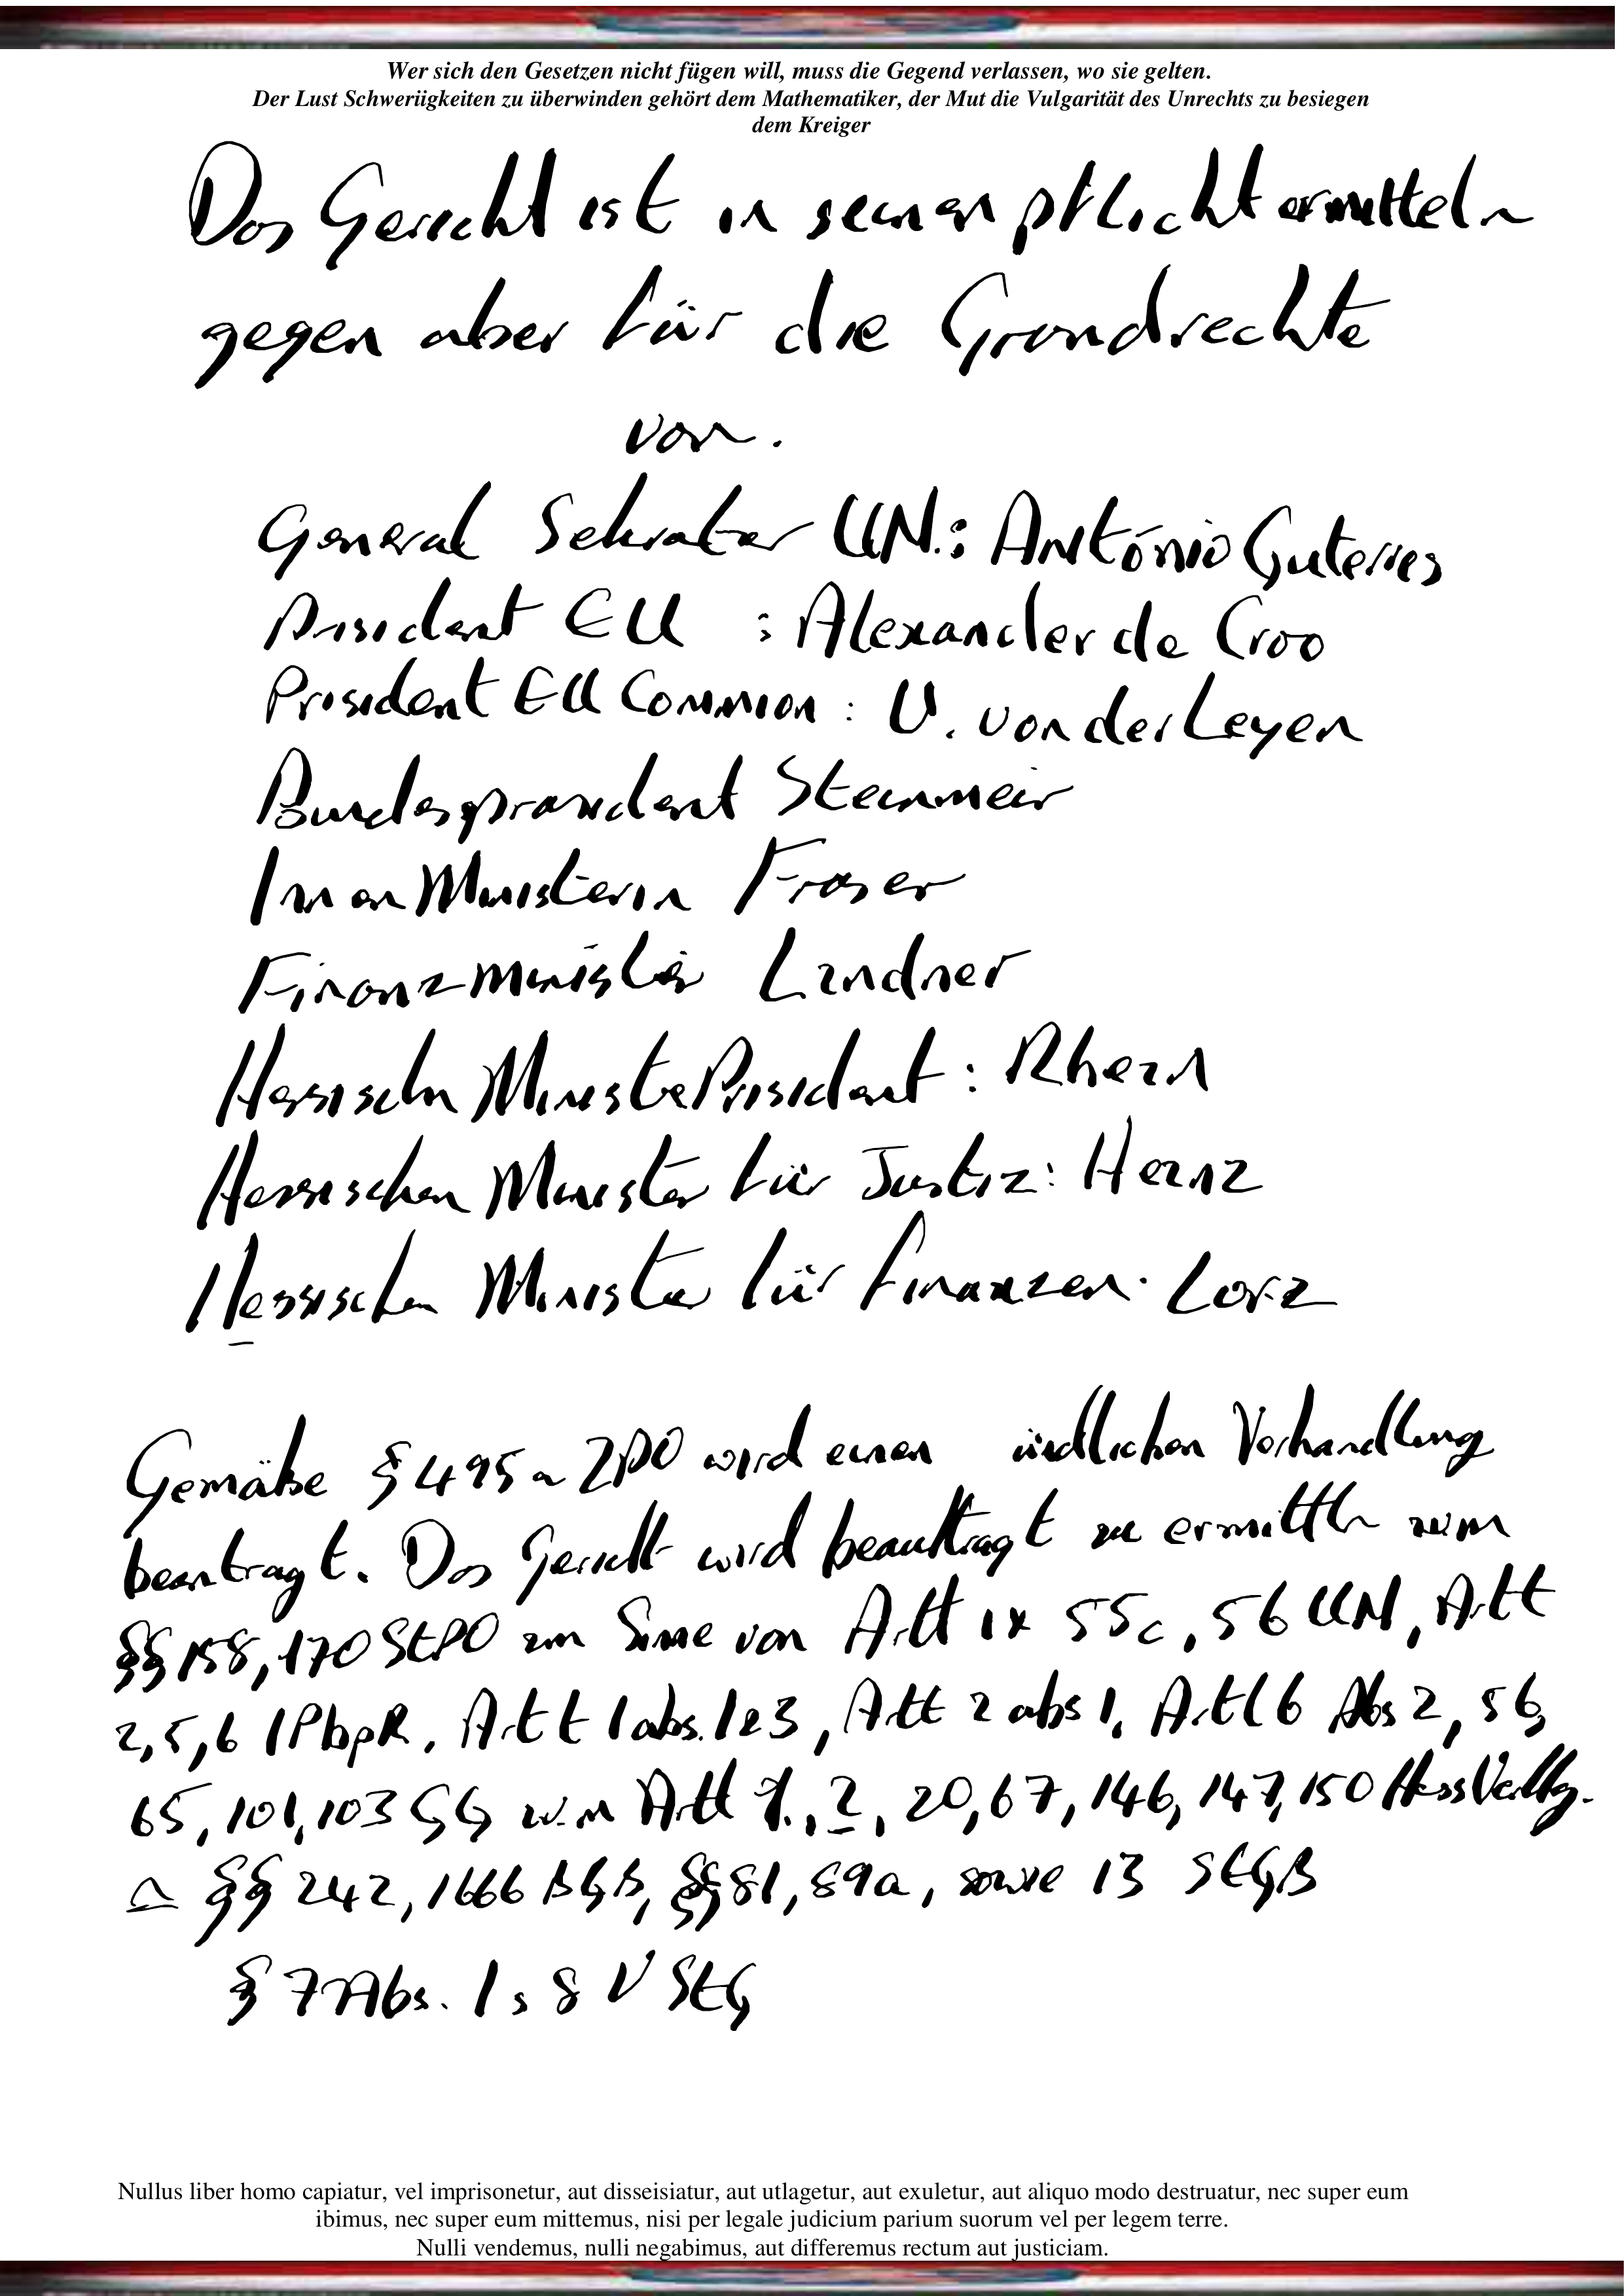 Wer sich den Gesetzen nicht fügen will, muss die Gegend verlassen, wo sie gelten.
Der Lust Schweriigkeiten zu überwinden gehört dem Mathematiker, der Mut die Vulgarität des Unrechts zu besiegen
dem Kreiger
Das Gericht ist in seinen pflicht ermitteln
gegen aber für die Grundrechte
von.
General Sekratar UN.: António Guterres
Präsident EU : Alexander de Croo
President EU Common : U. von der Leyen
Bundespräsident Steinmeir
Innen Ministerin Fraser
Finanzminister Lindner
Hessischn MinistePräsident : Rhein
Hessischen Minister für Justiz : Heinz
Hessischen Minister für Finanzen. Lorz
Gemäße § 495a ZPO wird einen ündlichen Verhandlung
beantragt. Das Gericht wird beauftragt zu ermittln zum
§§ 158, 170 StPO im Sinne von Artt IX 55c, 56 UN, Artt
2, 5, 6 IPbpR. Artt 1 abs. 1&3, Artt 2 abs 1, Artt 6 Abs 2, 56,
65, 101, 103 GG Artt 1., 2, 20, 67, 146, 147, 150 HessVerfg.
§§ 242, 1666 BGB, §§ 81, 89a, sowie 13 StGB
§ 7 Abs. 1, 8 VStG
Nullus liber homo capiatur, vel imprisonetur, aut disseisiatur, aut utlagetur, aut exuletur, aut aliquo modo destruatur, nec super eum
ibimus, nec super eum mittemus, nisi per legale judicium parium suorum vel per legem terre.
Nulli vendemus, nulli negabimus, aut differemus rectum aut justiciam.